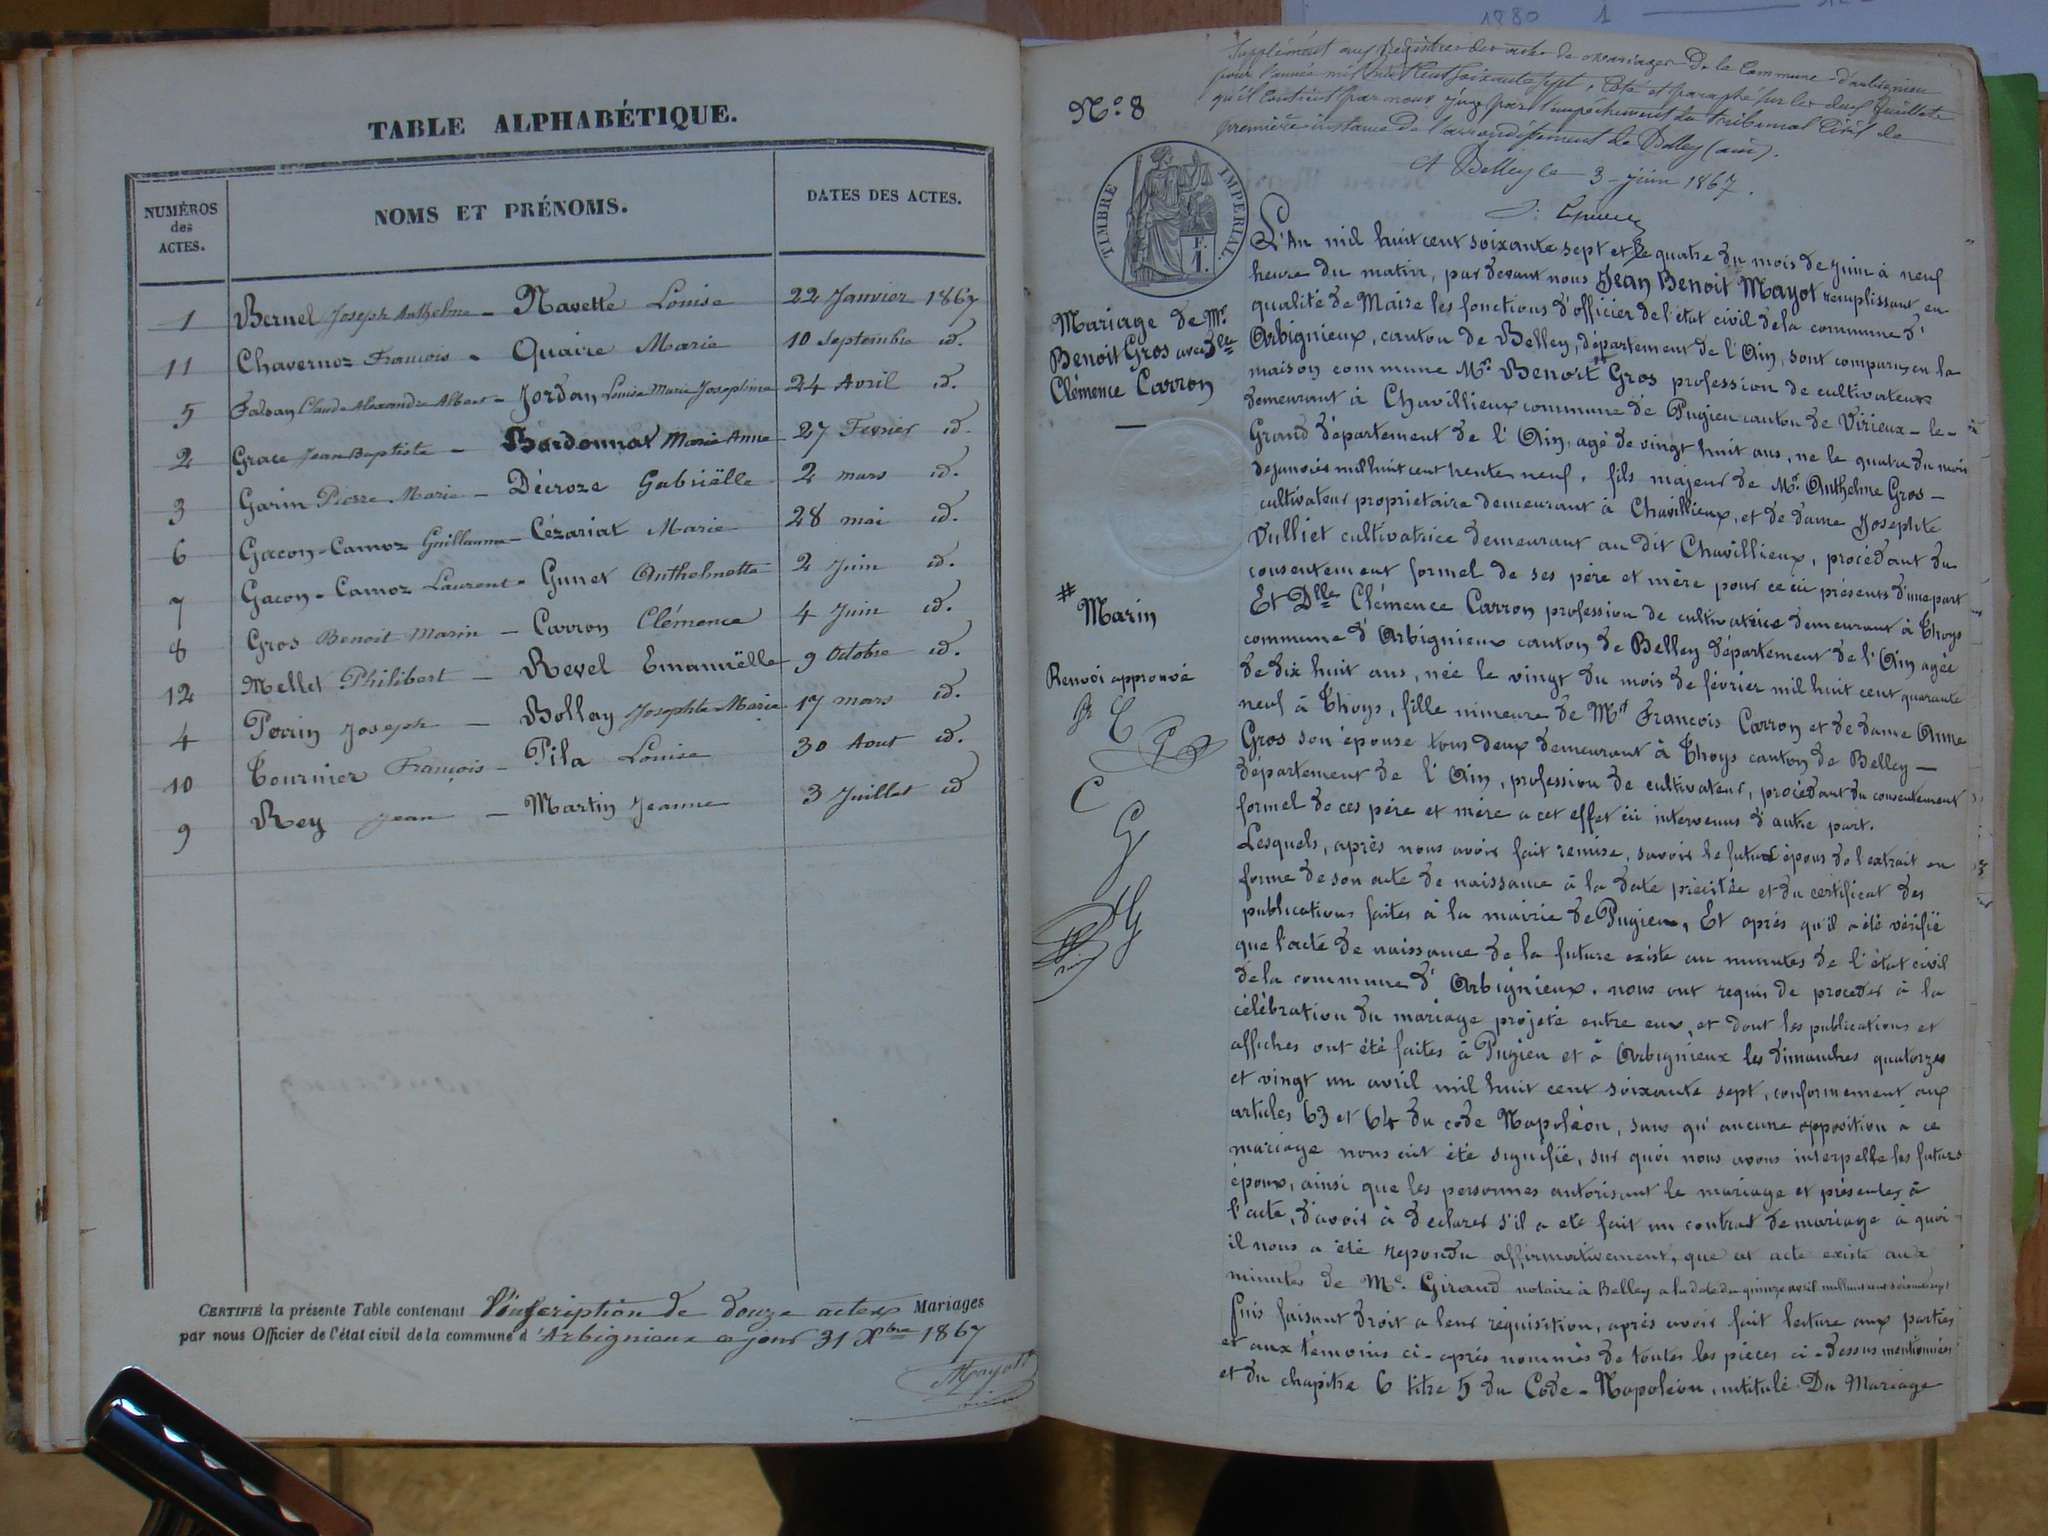 TABLE ALPHABÉTIQUE.
NUMÉROS des ACTES.
NOMS ET PRÉNOMS.
DATES DES ACTES.
1 Bernel Joseph Anthelme - Navette Louise 22 Janvier 1867
11 Chavernoz François - Quaire Marie 10 Septembre id.
5 Falsan Claude Alexandre Albert - Jordan Louise Marie Josephine 24 Avril id.
2 Grace Jean Baptiste - Bordonnat Marie Anne 27 Fevrier id.
3 Garin Pierre Marie - Décroze Gabriëlle 2 mars id.
6 Gacon-Camoz Guillaume - Cézariat Marie 28 mai id.
7 Gacon-Camoz Laurent - Gunet Anthelmette 2 Juin id.
8 Gros Benoit Marin - Carron Clémence 4 Juin id.
12 Mellet Philibert - Revel Emanuëlle 9 Octobre id.
4 Perrin Joseph - Bollay Josephte Marie 17 mars id.
10 Tournier François - Pila Louise 30 Aout id.
9 Rey Jean - Martin Jeanne 3 Juillet id
CERTIFIÉ la présente Table contenant l'inscription de douze actes Mariages
par nous Officier de l'état civil de la commune d'Arbignieux ce jour 31 Xbre 1867
Mayot
1880 1
Supplément aux Registres des actes de mariages de la Commune d'arbignieu
pour l'année mil huit cent soixante sept, Coté et paraphé sur les deux feuillets
qu'il contient par nous juge par l'empêchement du tribunal Civil de
première instance de l'arrondissement de Belley (ain).
A Belley le 3 juin 1867.
N° 8
TIMBRE IMPÉRIAL
F. 1.
Mariage de Mr
Benoit Gros avec Dlle
Clémence Carron
L'An mil huit cent soixante sept et le quatre du mois de Juin à neuf
heure du matin, par devant nous Jean Benoit Mayot remplissant en
qualité de Maire les fonctions d'officier de l'état civil de la commune d'
Arbignieux, canton de Belley, département de l'Ain, sont comparus en la
maison commune Mr Benoit # Gros profession de cultivateur
demeurant à Chavillieux commune de Pugieu canton de Virieux-le-
Grand département de l'Ain, agé de vingt huit ans, ne le quatre du mois
de janvier mil huit cent trente neuf, fils majeur de Mr Anthelme Gros
cultivateur proprietaire demeurant à Chavillieux, et de dame Josephte
Vulliet cultivatrice demeurant au dit Chavillieux, procédant du
consentement formel de ses père et mère pour ce ici présents d'une part
Et Dlle Clémence Carron profession de cultivatrice demeurant à Thoys
commune d'Arbignieux canton de Belley département de l'Ain agée
de dix huit ans, née le vingt du mois de février mil huit cent quarante
neuf à Thoys, fille mineure de Mr François Carron et de dame Anne
Gros son épouse tous deux demeurant à Thoys canton de Belley
département de l'Ain, profession de cultivateur, procédant du consentement
formel de ces père et mère a cet effet ici intervenus d'autre part.
# Marin
Renvoi approuvé
Lesquels, après nous avoir fait remise, savoir le futur époux de l'extrait en
forme de son acte de naissance à la date précitée et du certificat des
publications faites à la mairie de Pugieu, Et après qu'il a été vérifié
que l'acte de naissance de la future existe au minutes de l'état civil
de la commune d'Arbignieux, nous ont requis de proceder à la
célébration du mariage projeté entre eux, et dont les publications et
affiches ont été faites à Pugieu et à Arbignieux les dimanches quatorze
et vingt un avril mil huit cent soixante sept, conformement aux
articles 63 et 64 du code Napoléon, sans qu'aucune opposition à ce
mariage nous ait été signifié, sur quoi nous avons interpellé les futurs
époux, ainsi que les personnes autorisant le mariage et présentes à
l'acte, d'avoir à declarer s'il a eté fait un contrat de mariage à quoi
il nous a été repondu affirmativement, que cet acte existe aux
minutes de Me Giraud notaire à Belley a la date du quinze avril mil huit cent soixante sept
Puis faisant droit a leur réquisition, après avoir fait lecture aux parties
et aux témoins ci-après nommés de toutes les pièces ci-dessus mentionnées
et du chapitre 6 titre 5 du Code-Napoléon, intitulé Du Mariage